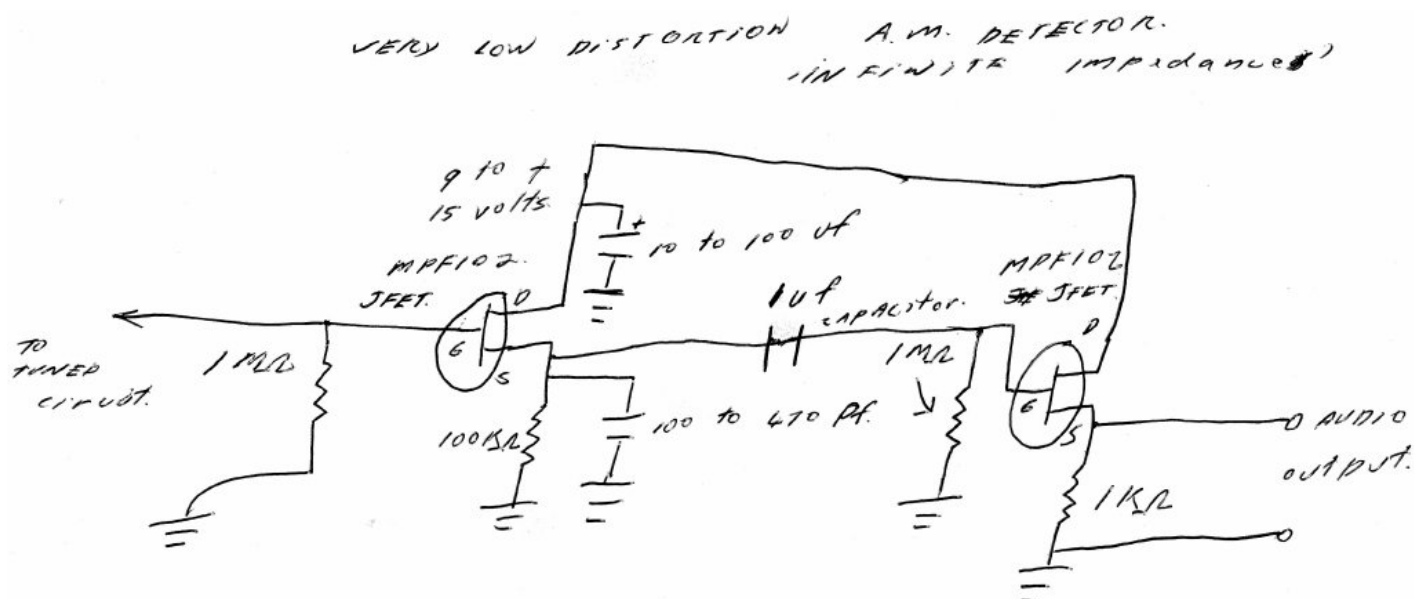 VERY LOW DISTORTION A.M. DETECTOR.
"INFINITE Impedance"
9 to +
15 volts.
+
10 to 100 uf
MPF102.
JFET.
D
G
S
TO
TUNED
circuit.
1MΩ
100KΩ
100 to 470 Pf.
1uf
CAPACITOR.
1MΩ
MPF102
JFET.
D
G
S
AUDIO
output.
1KΩ